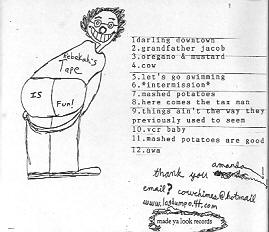 Rebekah's
Tape
IS
Fun!
1darling downtown
2.grandfather jacob
3.oregano & mustard
4.cow
5.let's go swimming
6.*intermission*
7.mashed potatoes
8.here comes the tax man
9.things ain't the way they
previously used to seem
10.vcr baby
11.mashed potatoes are good
12.owa
amanda
thank you
email? cowchimes@hotmail
made ya look records